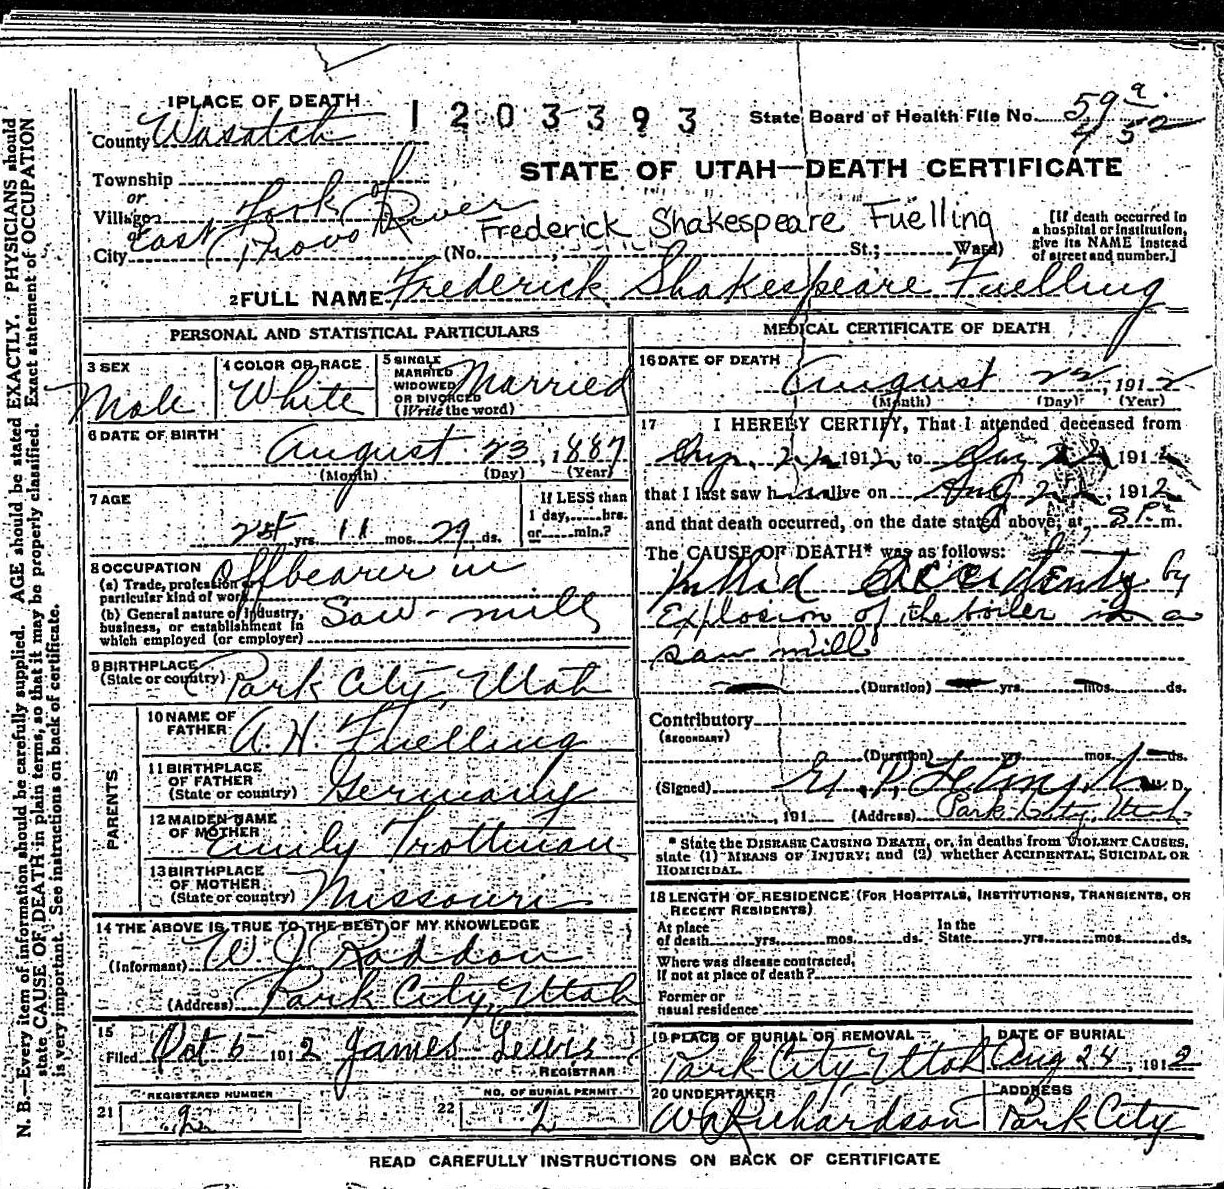 1 PLACE OF DEATH
1203393
State Board of Health File No. 59 a.
County Wasatch
STATE OF UTAH—DEATH CERTIFICATE
Township
or
Village Fork of
or
City East Provo River (No. St.; Ward)
Frederick Shakespeare Fuelling
[If death occurred in
a hospital or institution,
give its NAME instead
of street and number.]
2 FULL NAME Frederick Shakespeare Fuelling
PERSONAL AND STATISTICAL PARTICULARS
3 SEX
Male
4 COLOR OR RACE
White
5 SINGLE
MARRIED
WIDOWED
OR DIVORCED
(Write the word)
Married
6 DATE OF BIRTH
August 23, 1887
(Month) (Day) (Year)
7 AGE
yrs. 11 mos. 29 ds.
If LESS than
1 day,.....hrs.
or.....min.?
8 OCCUPATION
(a) Trade, profession or
particular kind of work
Offbearer in
(b) General nature of Industry,
business, or establishment in
which employed (or employer)
Saw-mill
9 BIRTHPLACE
(State or country) Park City, Utah
PARENTS
10 NAME OF
FATHER
A. H. Fuelling
11 BIRTHPLACE
OF FATHER
(State or country) Germany
12 MAIDEN NAME
OF MOTHER
Emily Trottman
13 BIRTHPLACE
OF MOTHER
(State or country) Missouri
14 THE ABOVE IS TRUE TO THE BEST OF MY KNOWLEDGE
(Informant) W. J. Raddon
(Address) Park City, Utah
15
Filed Oct 5 1912 James Lewis
REGISTRAR
REGISTERED NUMBER
21 2
NO. OF BURIAL PERMIT
22 2
MEDICAL CERTIFICATE OF DEATH
16 DATE OF DEATH
August 22, 1912
(Month) (Day) (Year)
17 I HEREBY CERTIFY, That I attended deceased from
Aug. 22 1912, to Aug 22 1912
that I last saw him alive on Aug 22, 1912
and that death occurred, on the date stated above, at 8 P m.
The CAUSE OF DEATH* was as follows:
Killed accidently by
Explosion of the boiler in a
saw mill
(Duration) yrs. mos. ds.
Contributory
(SECONDARY)
(Duration) yrs. mos. ds.
(Signed) M. D.
, 191 (Address) Park City, Utah
* State the DISEASE CAUSING DEATH, or, in deaths from VIOLENT CAUSES,
state (1) MEANS OF INJURY; and (2) whether ACCIDENTAL, SUICIDAL OR
HOMICIDAL.
18 LENGTH OF RESIDENCE (FOR HOSPITALS, INSTITUTIONS, TRANSIENTS, OR
RECENT RESIDENTS)
At place
of death yrs. mos. ds.
In the
State yrs. mos. ds.
Where was disease contracted,
if not at place of death?
Former or
usual residence
19 PLACE OF BURIAL OR REMOVAL
Park City, Utah
DATE OF BURIAL
Aug 24, 1912
20 UNDERTAKER
Wm Richardson
ADDRESS
Park City
READ CAREFULLY INSTRUCTIONS ON BACK OF CERTIFICATE
N. B.—Every item of information should be carefully supplied. AGE should be stated EXACTLY. PHYSICIANS should
state CAUSE OF DEATH in plain terms, so that it may be properly classified. Exact statement of OCCUPATION
is very important. See instructions on back of certificate.